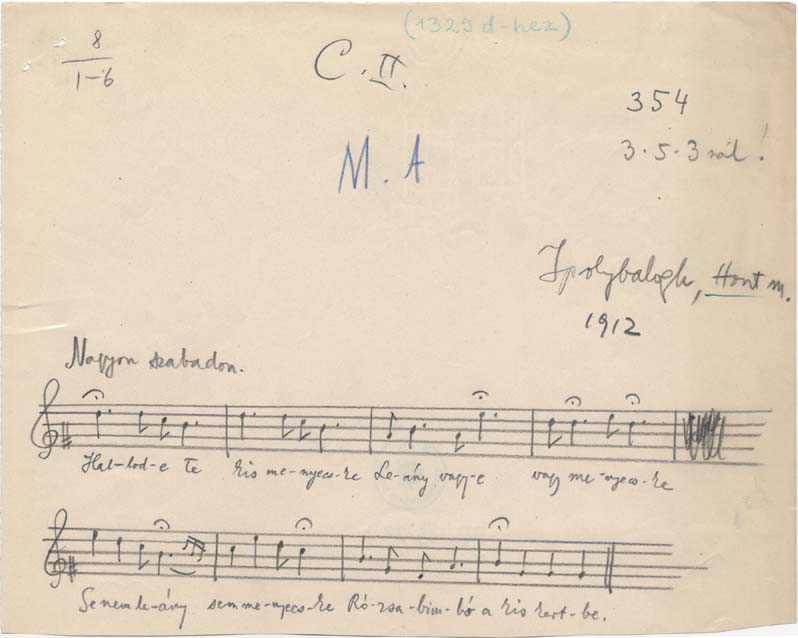 (1329 d-hez)
8
1-6
C. II.
354
3·5·3 ról!
M. A
Ipolybalogh, Hont m.
1912
Nagyon szabadon.
Hal-lod-e te kis me-nyecs-ke Le-ány vagy-e vagy me-nyecs-ke
Se nem le-ány sem me-nyecs-ke Ró-zsa-bim-bó a kis kert-be.